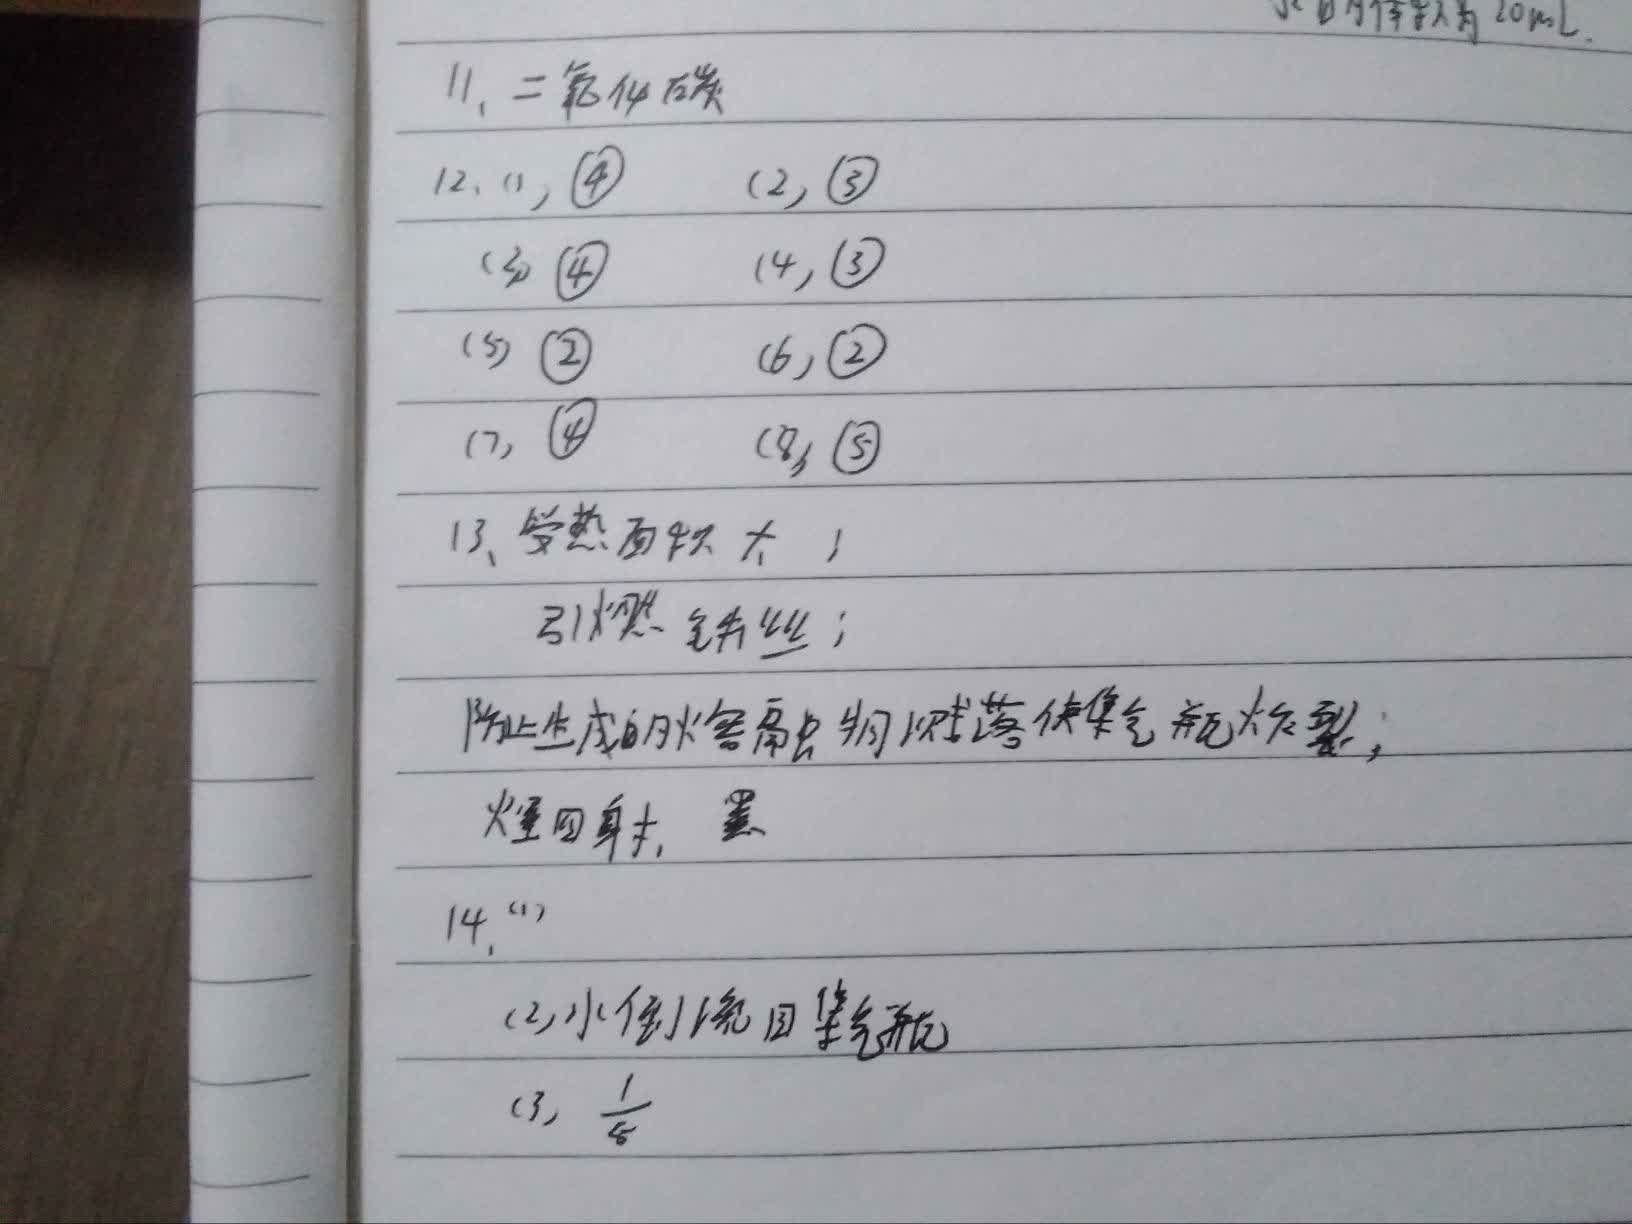 的体积为20mL.
11、二氧化碳
12、(1) ④ (2) ③
(3) ④ (4) ③
(5) ② (6) ②
(7) ④ (8) ⑤
13、受热面积大；
引燃铁丝；
防止生成的熔融物溅落使集气瓶炸裂；
火星四射，黑
14、(1)
(2) 水倒流回集气瓶
(3) 1/5